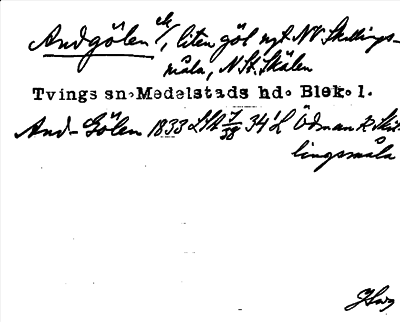 Andgölen ek/, liten göl ngt NV Skillings-
måla, N St. Skälen
Tvings sn. Medelstads hd. Blek. l.
And-Gölen 1833 LSA 7/38 34 L Ödman R. Skil-
lingsmåla